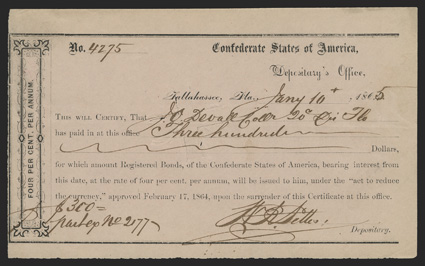 No. 4275 Confederate States of America,
Depositary's Office,
Tallahassee, Fla. Jany 10th 1865
THIS WILL CERTIFY, That
has paid in at this office Three hundred
Dollars,
for which amount Registered Bonds, of the Confederate States of America, bearing interest from
this date, at the rate of four per cent. per annum, will be issued to him, under the "act to reduce
the currency," approved February 17, 1864, upon the surrender of this Certificate at this office.
$300=
No 2177
Depositary.
FOUR PER CENT. PER ANNUM.